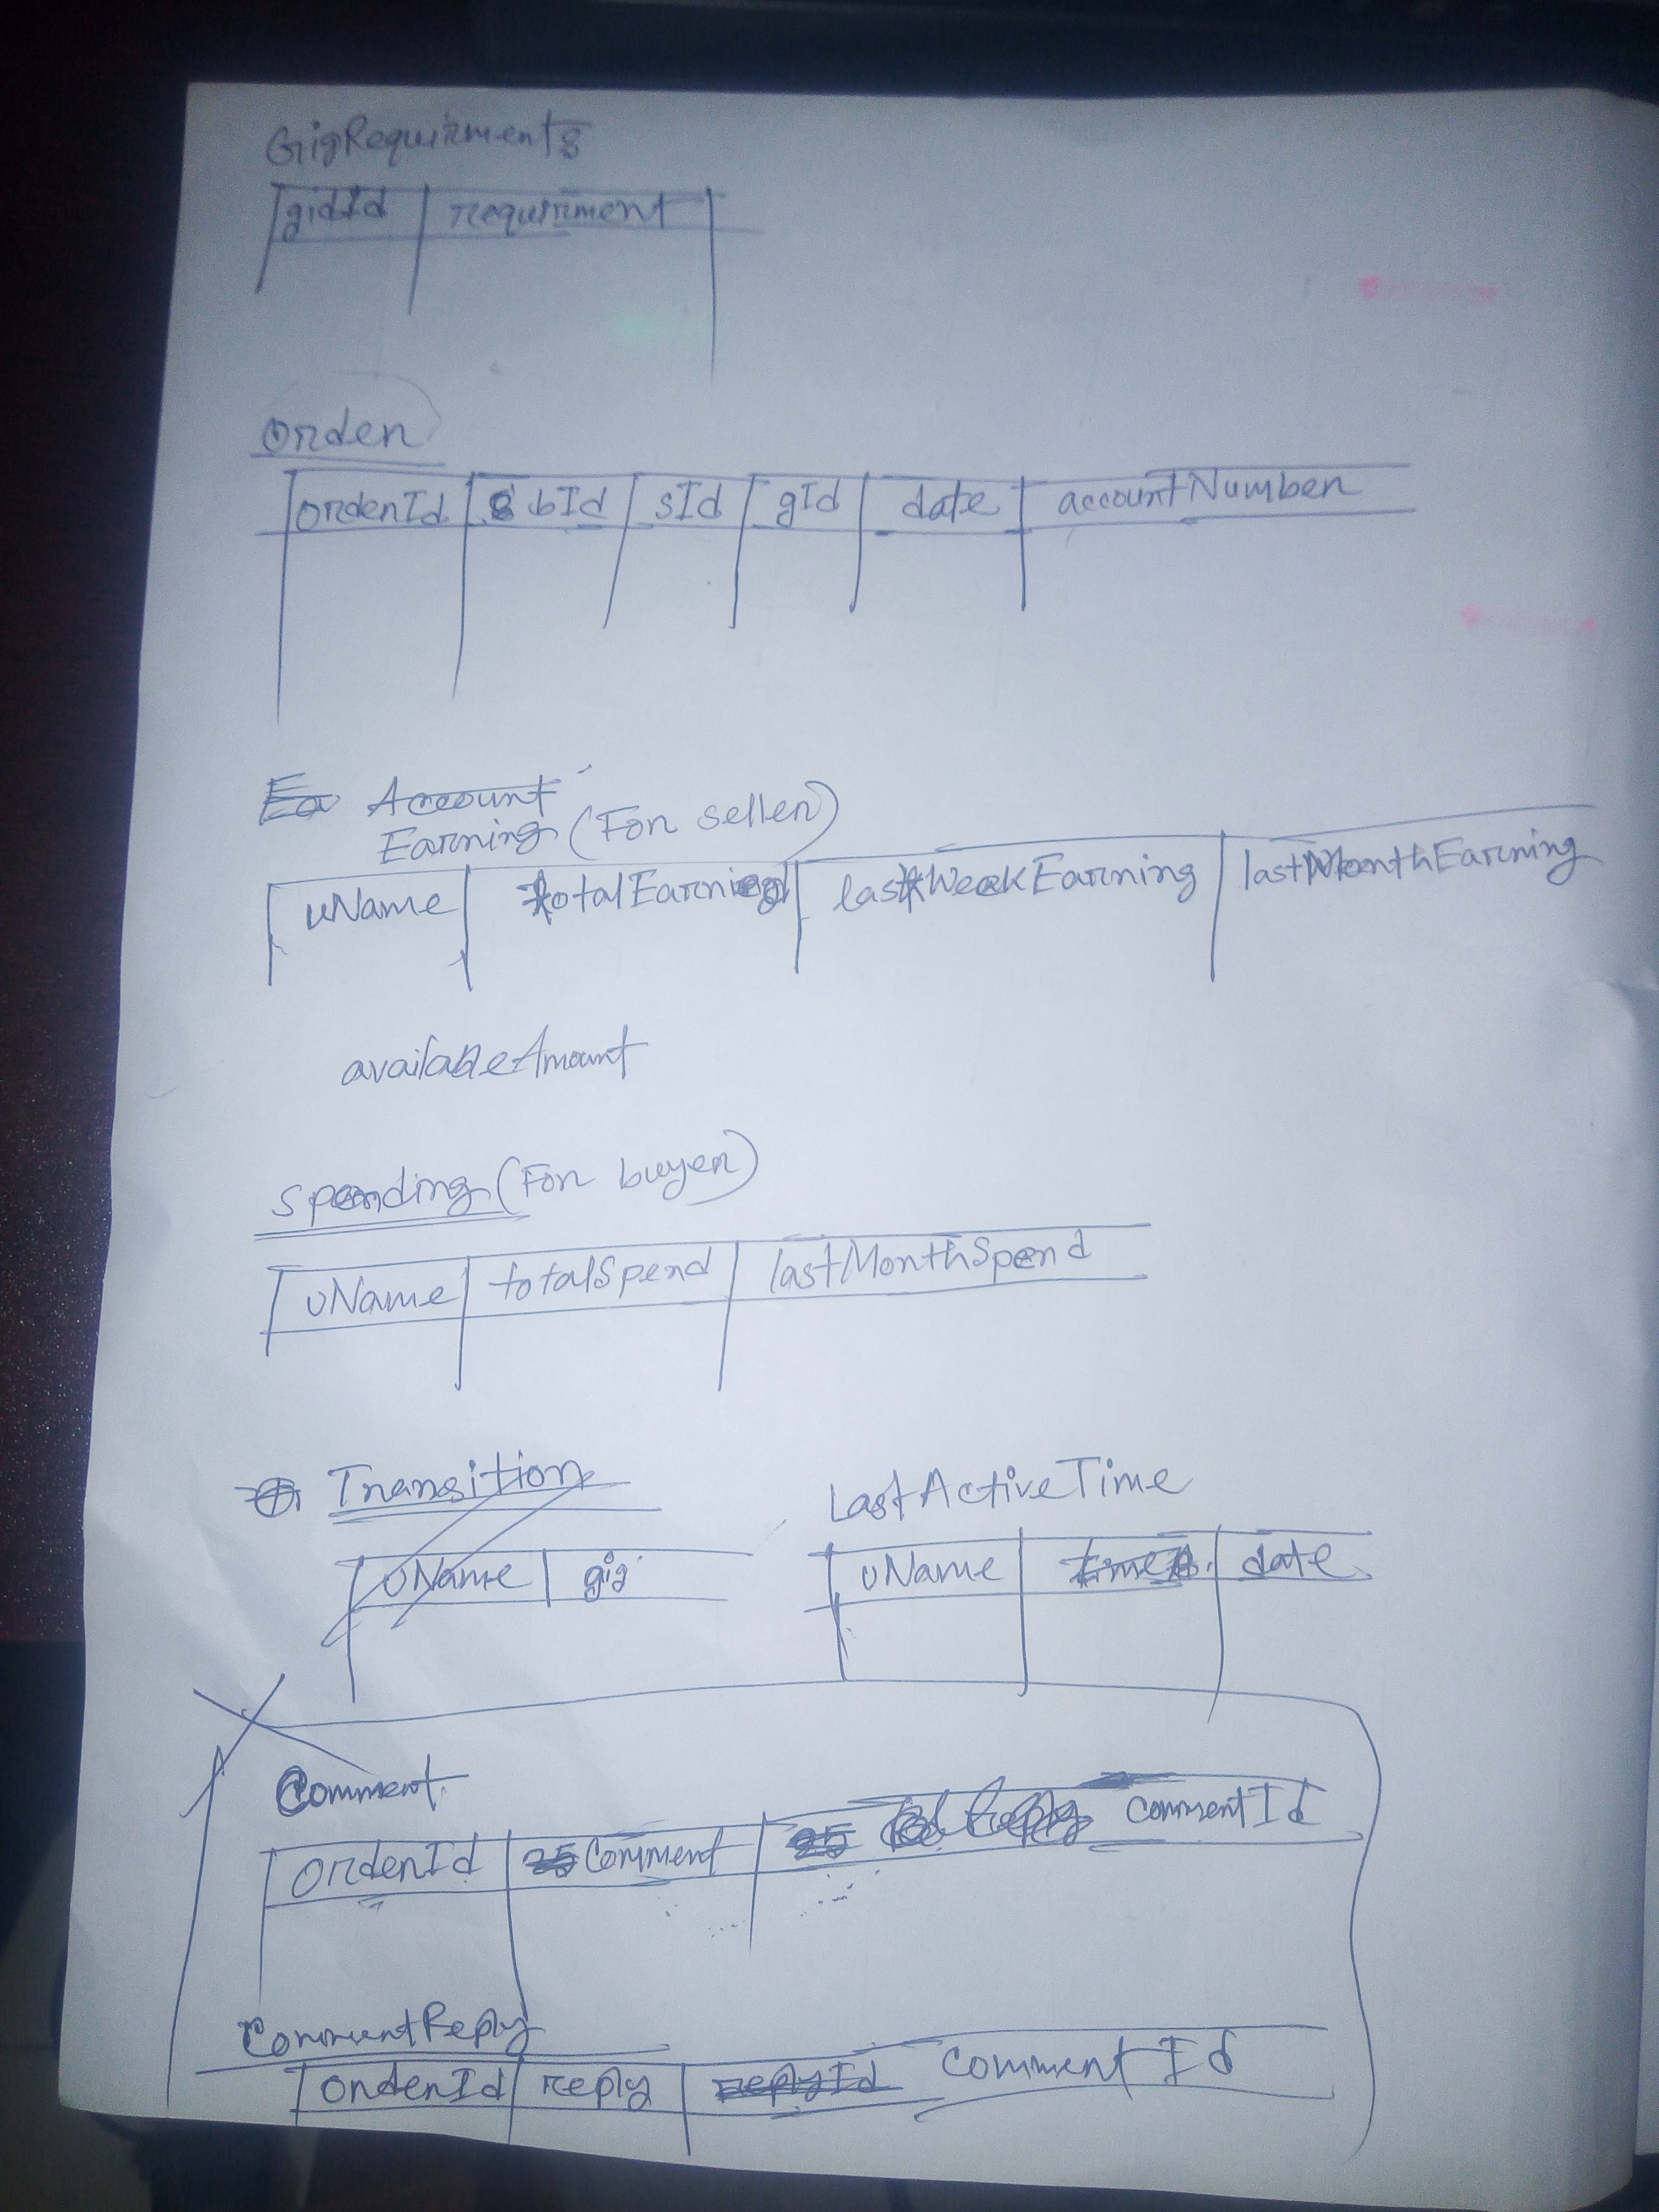 GigRequirments
gidId requirment
Order
orderId bId sId gId date accountNumber
Ea Account
Earning (For seller)
uName totalEarning lastWeekEarning lastMonthEarning
availableAmount
Spending (For buyer)
uName totalSpend lastMonthSpend
Transition
LastActiveTime
uName gig
uName time date
Comment
OrderId Comment commentId
CommentReply
OrderId reply replyId comment Id